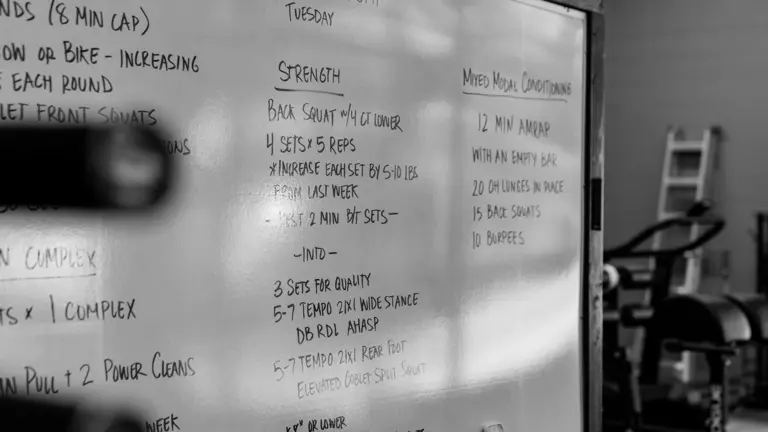 (8 MIN CAP)
OW OR BIKE - INCREASING
EACH ROUND
LET FRONT SQUATS
COMPLEX
TS x 1 COMPLEX
PULL + 2 POWER CLEANS
WEEK
TUESDAY
STRENGTH
BACK SQUAT W/4 CT LOWER
4 SETS x 5 REPS
*INCREASE EACH SET BY 5-10 LBS
FROM LAST WEEK
2 MIN B/T SETS-
-INTO-
3 SETS FOR QUALITY
5-7 TEMPO 21X1 WIDE STANCE
DB RDL AHASP
5-7 TEMPO 21X1 REAR FOOT
ELEVATED GOBLET SPLIT SQUAT
OR LOWER
MIXED MODAL CONDITIONING
12 MIN AMRAP
WITH AN EMPTY BAR
20 OH LUNGES IN PLACE
15 BACK SQUATS
10 BURPEES